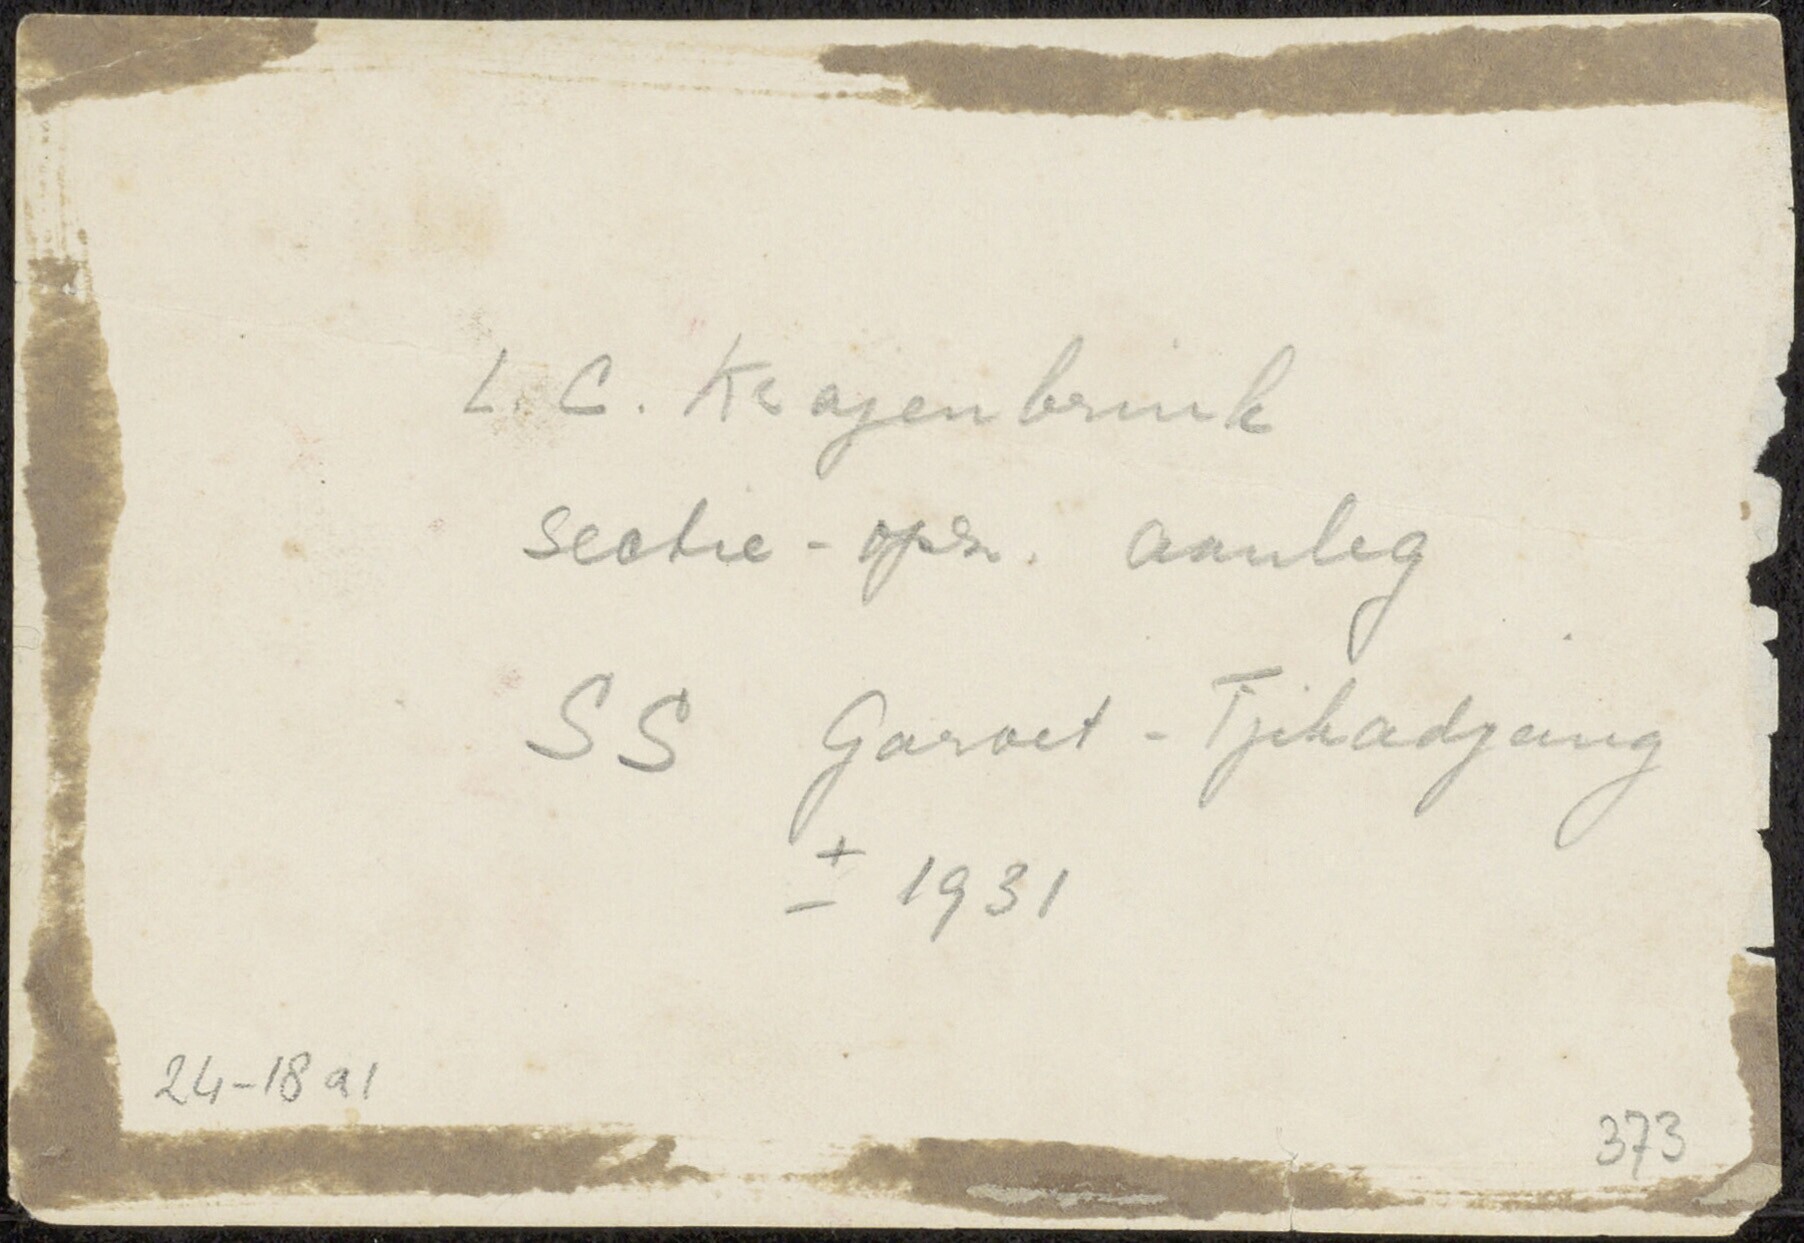 L. C. Kragenbrink
sectie-opz. aanleg
SS Garoet - Tjikadjang
± 1931
24-18 a1
373